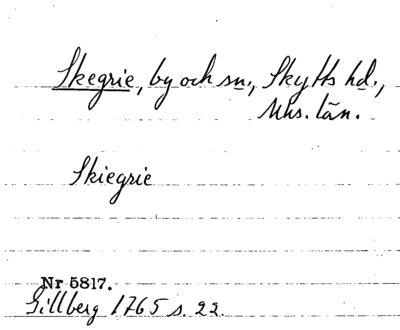 Skegrie, by och sn., Skytts hd.,
Mhs. län.
Skiegrie
Nr 5817.
Gillberg 1765 s. 22.